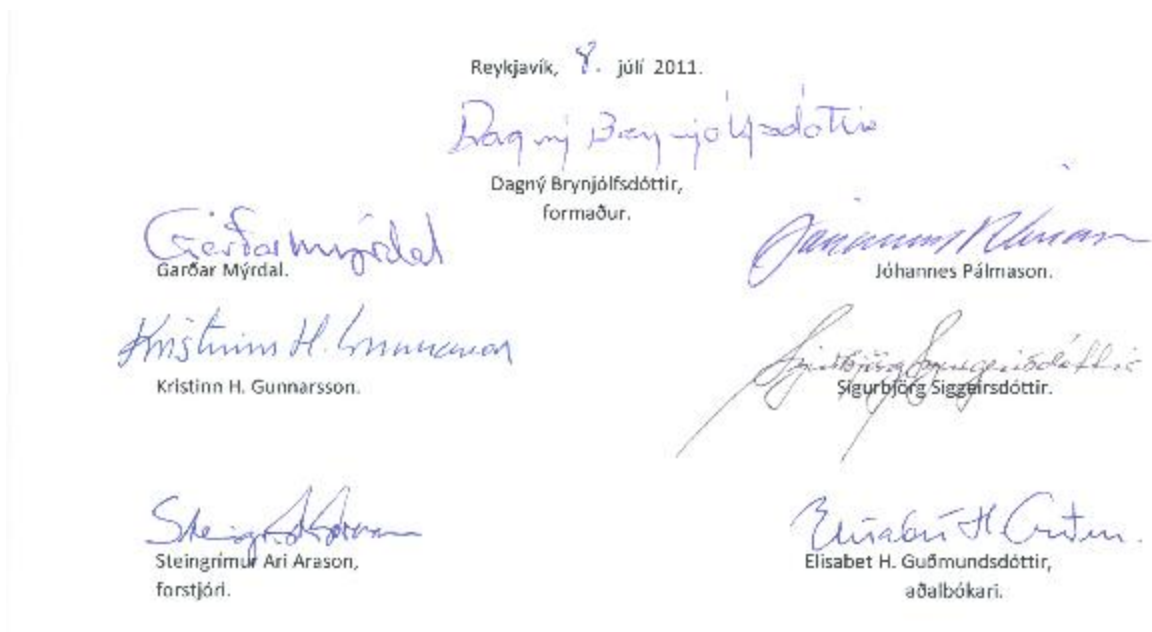 Reykjavík, 8. júlí 2011.
Dagný Brynjólfsdóttir
Dagný Brynjólfsdóttir,
formaður.
Garðar Mýrdal
Garðar Mýrdal.
Jóhannes Pálmason
Jóhannes Pálmason.
Kristinn H. Gunnarsson
Kristinn H. Gunnarsson.
Sigurbjörg Siggeirsdóttir
Sigurbjörg Siggeirsdóttir.
Steingrímur Ari Arason,
forstjóri.
Elisabet H. Guðm.
Elisabet H. Guðmundsdóttir,
aðalbókari.